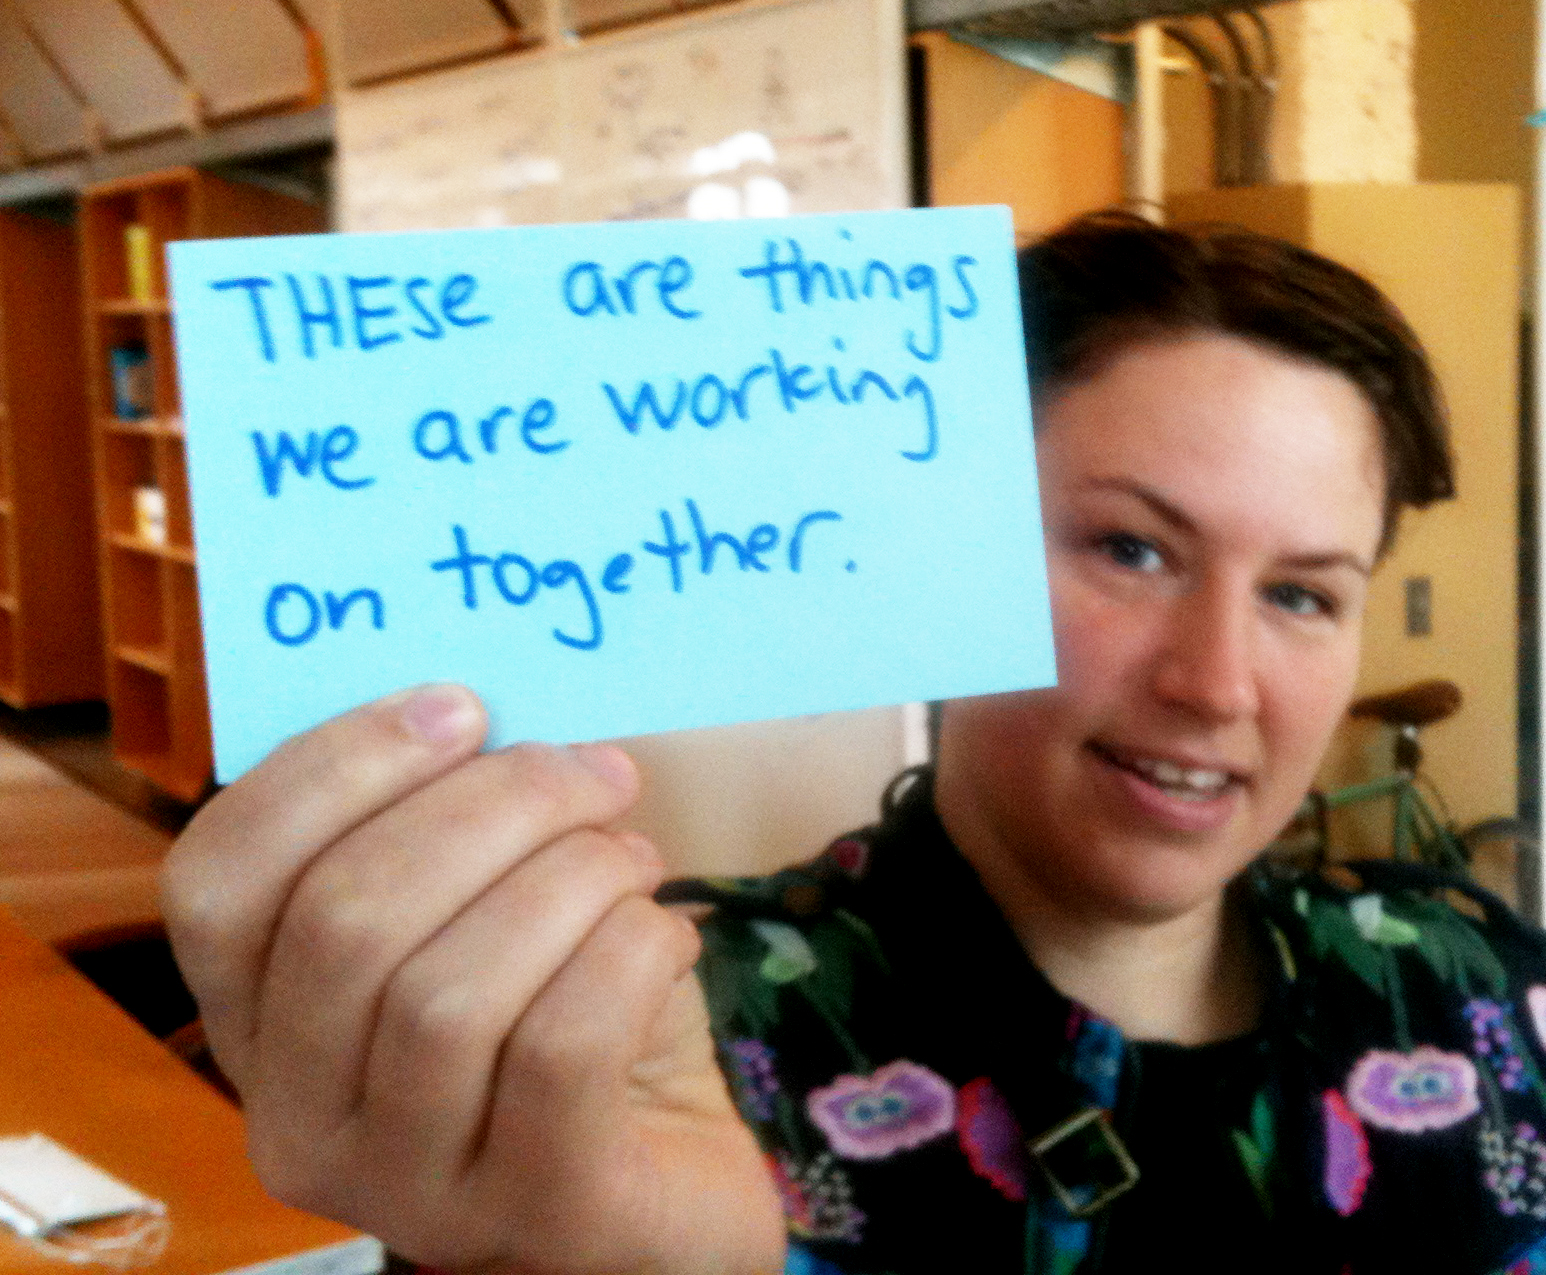 THESe are things
we are working
on together.